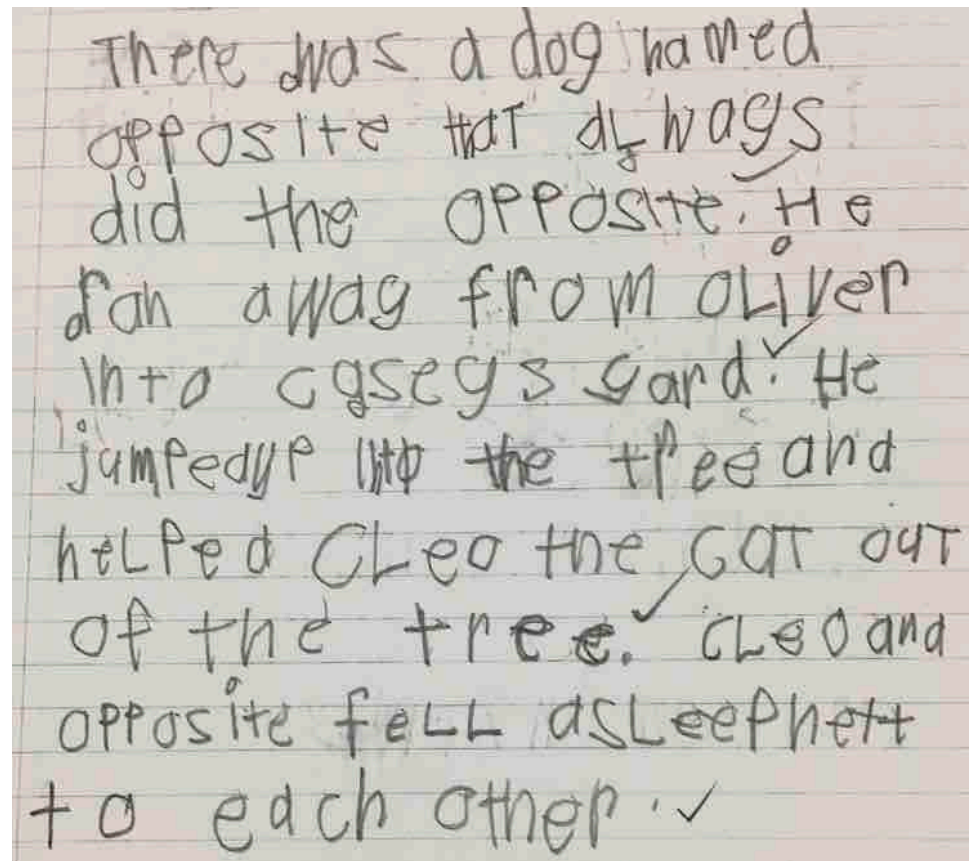 There was a dog named
opposite that always
did the opposite. He
ran away from oliver
into caseys yard. He
jumped up into the tree and
helped Cleo the cat out
of the tree. Cleo and
opposite fell asleep next
to each other.